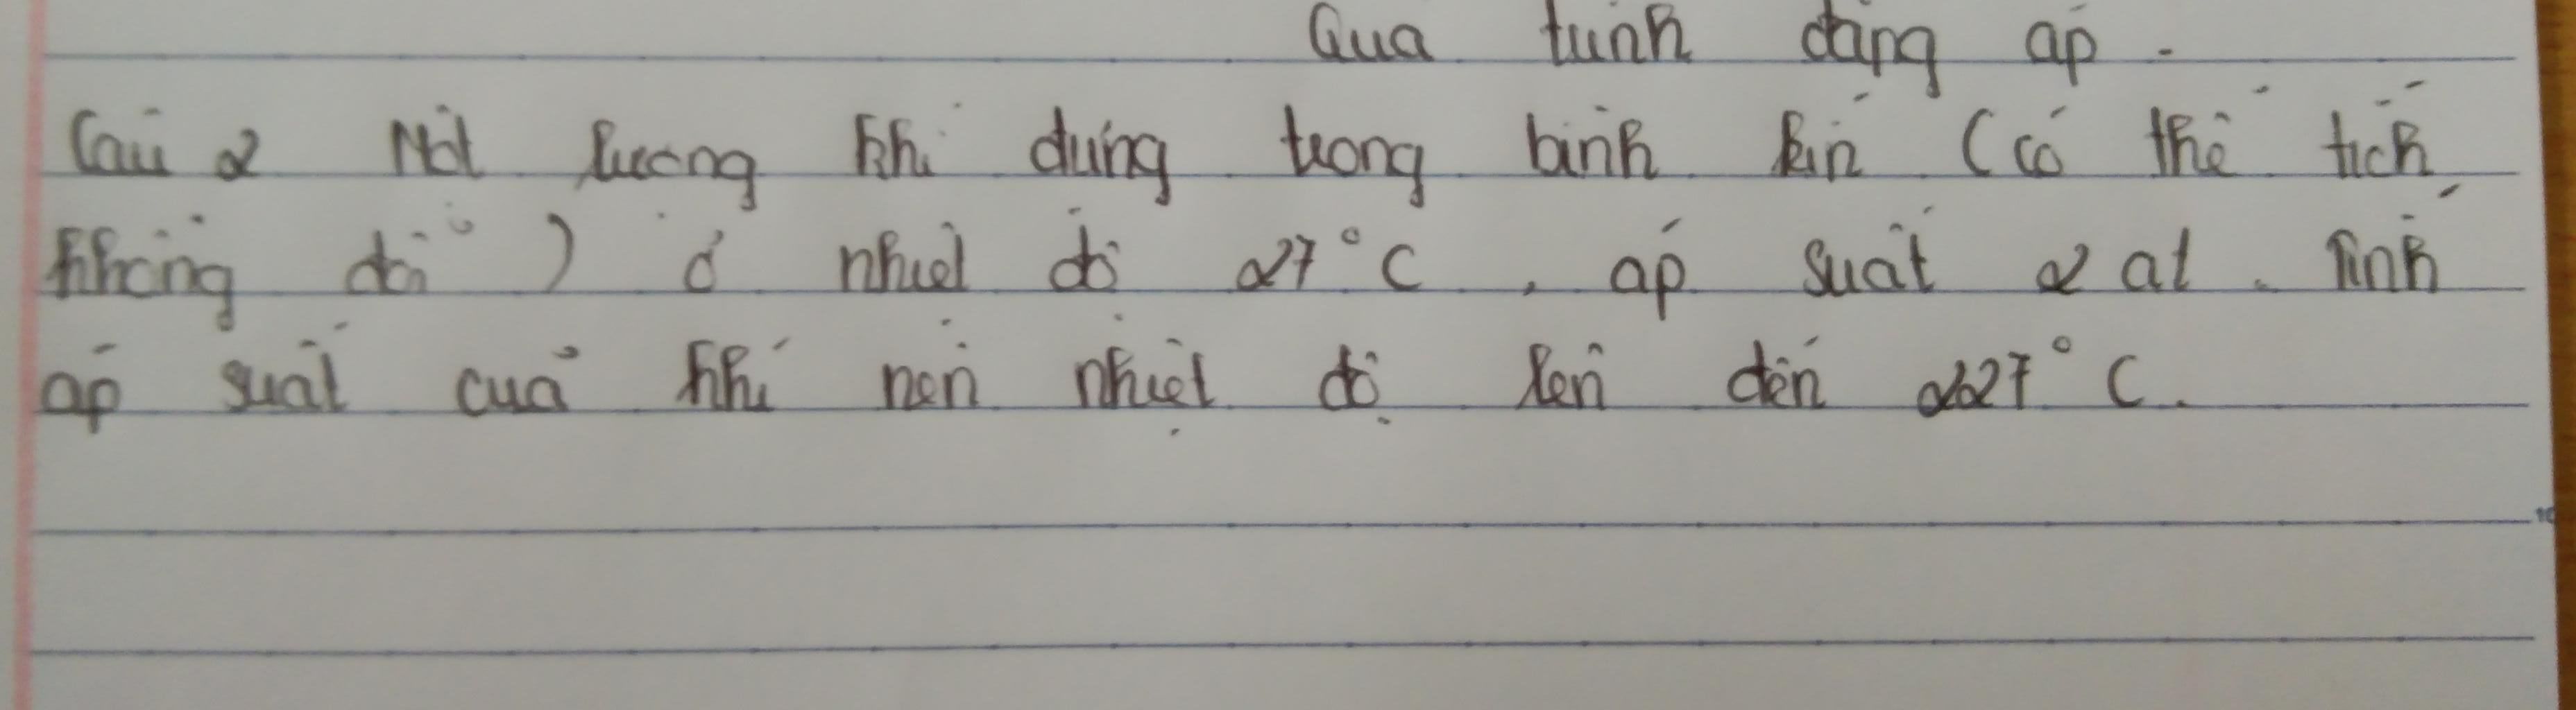 Quá trình đẳng áp.
Câu 2 Một lượng khí đựng trong bình kín (có thể tích
không đổi) ở nhiệt độ 27°C, áp suất 2 at. Tính
áp suất của khí nến nhiệt độ lên đến 227°C.